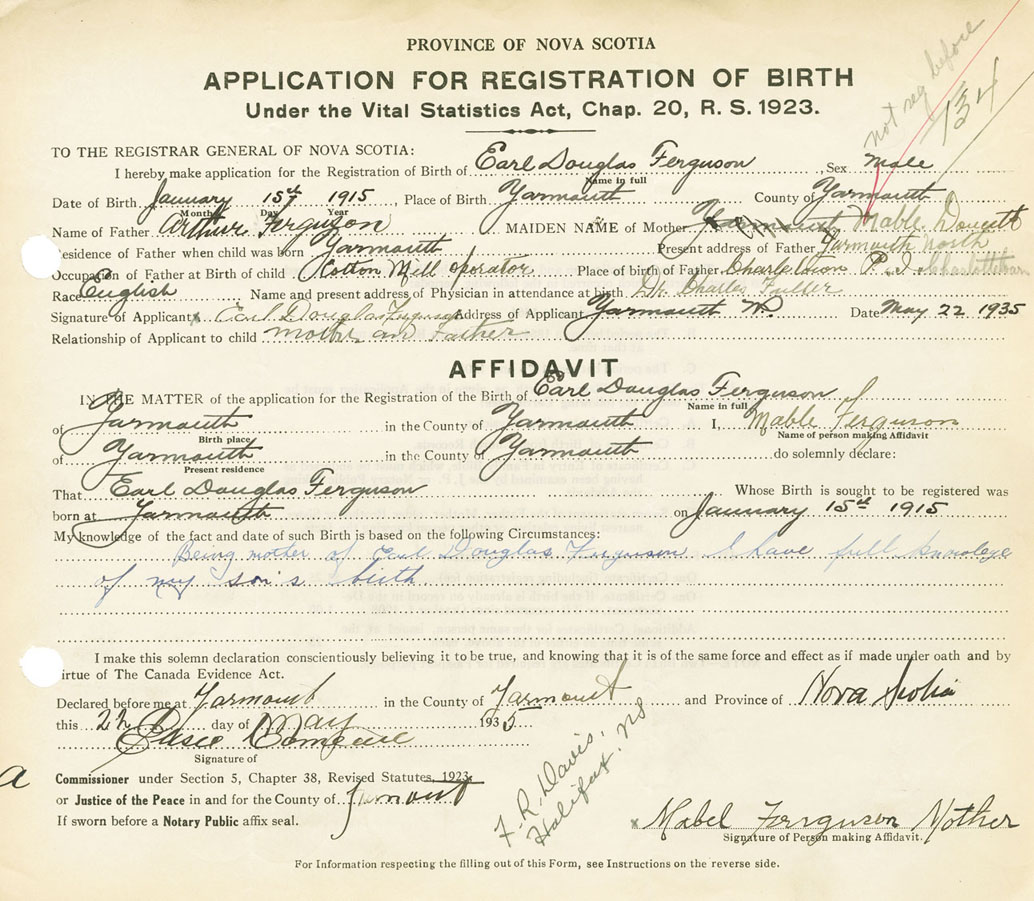 PROVINCE OF NOVA SCOTIA
APPLICATION FOR REGISTRATION OF BIRTH
Under the Vital Statistics Act, Chap. 20, R. S. 1923.
not reg before
134
TO THE REGISTRAR GENERAL OF NOVA SCOTIA:
I hereby make application for the Registration of Birth of Earl Douglas Ferguson, Sex male
Name in full
Date of Birth January 15th 1915, Place of Birth Yarmouth County of Yarmouth
Month Day Year
Name of Father Arthur Ferguson MAIDEN NAME of Mother Mable Doucett
Residence of Father when child was born Yarmouth Present address of Father Yarmouth North
Occupation of Father at Birth of child Cotton Mill oporator Place of birth of Father Charlottown P. I. Charlottetown
Race English Name and present address of Physician in attendance at birth Dr. Charles Fuller
Signature of Applicant x Earl Douglas Ferguson Address of Applicant Yarmouth N. Date May 22 1935
Relationship of Applicant to child mother and Father
AFFIDAVIT
IN THE MATTER of the application for the Registration of the Birth of Earl Douglas Ferguson
Name in full
of Yarmouth in the County of Yarmouth I, Mable Ferguson
Birth place Name of person making Affidavit
of Yarmouth in the County of Yarmouth do solemnly declare:
Present residence
That Earl Douglas Ferguson Whose Birth is sought to be registered was
born at Yarmouth on January 15th 1915
My knowledge of the fact and date of such Birth is based on the following Circumstances:
Being mother of Earl Douglas Ferguson I have full knowlege
of my son's birth
I make this solemn declaration conscientiously believing it to be true, and knowing that it is of the same force and effect as if made under oath and by
irtue of The Canada Evidence Act.
Declared before me at Yarmouth in the County of Yarmouth and Province of Nova Scotia
this 22 day of May 1935
Elsie Comeau
Signature of
a
Commissioner under Section 5, Chapter 38, Revised Statutes, 1923
or Justice of the Peace in and for the County of Yarmouth
If sworn before a Notary Public affix seal.
F. R. Davis,
Halifax. NS
x Mabel Ferguson Mother
Signature of Person making Affidavit.
For Information respecting the filling out of this Form, see Instructions on the reverse side.